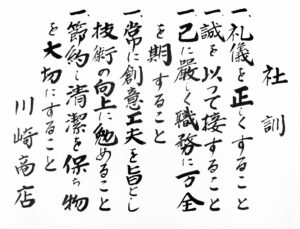 社訓
一、礼儀を正しくすること
一、誠を以って接すること
一、己に厳しく職務に万全
を期すること
一、常に創意工夫を旨とし
技術の向上に勉めること
一、節約し清潔を保ち物
を大切にすること
川崎商店